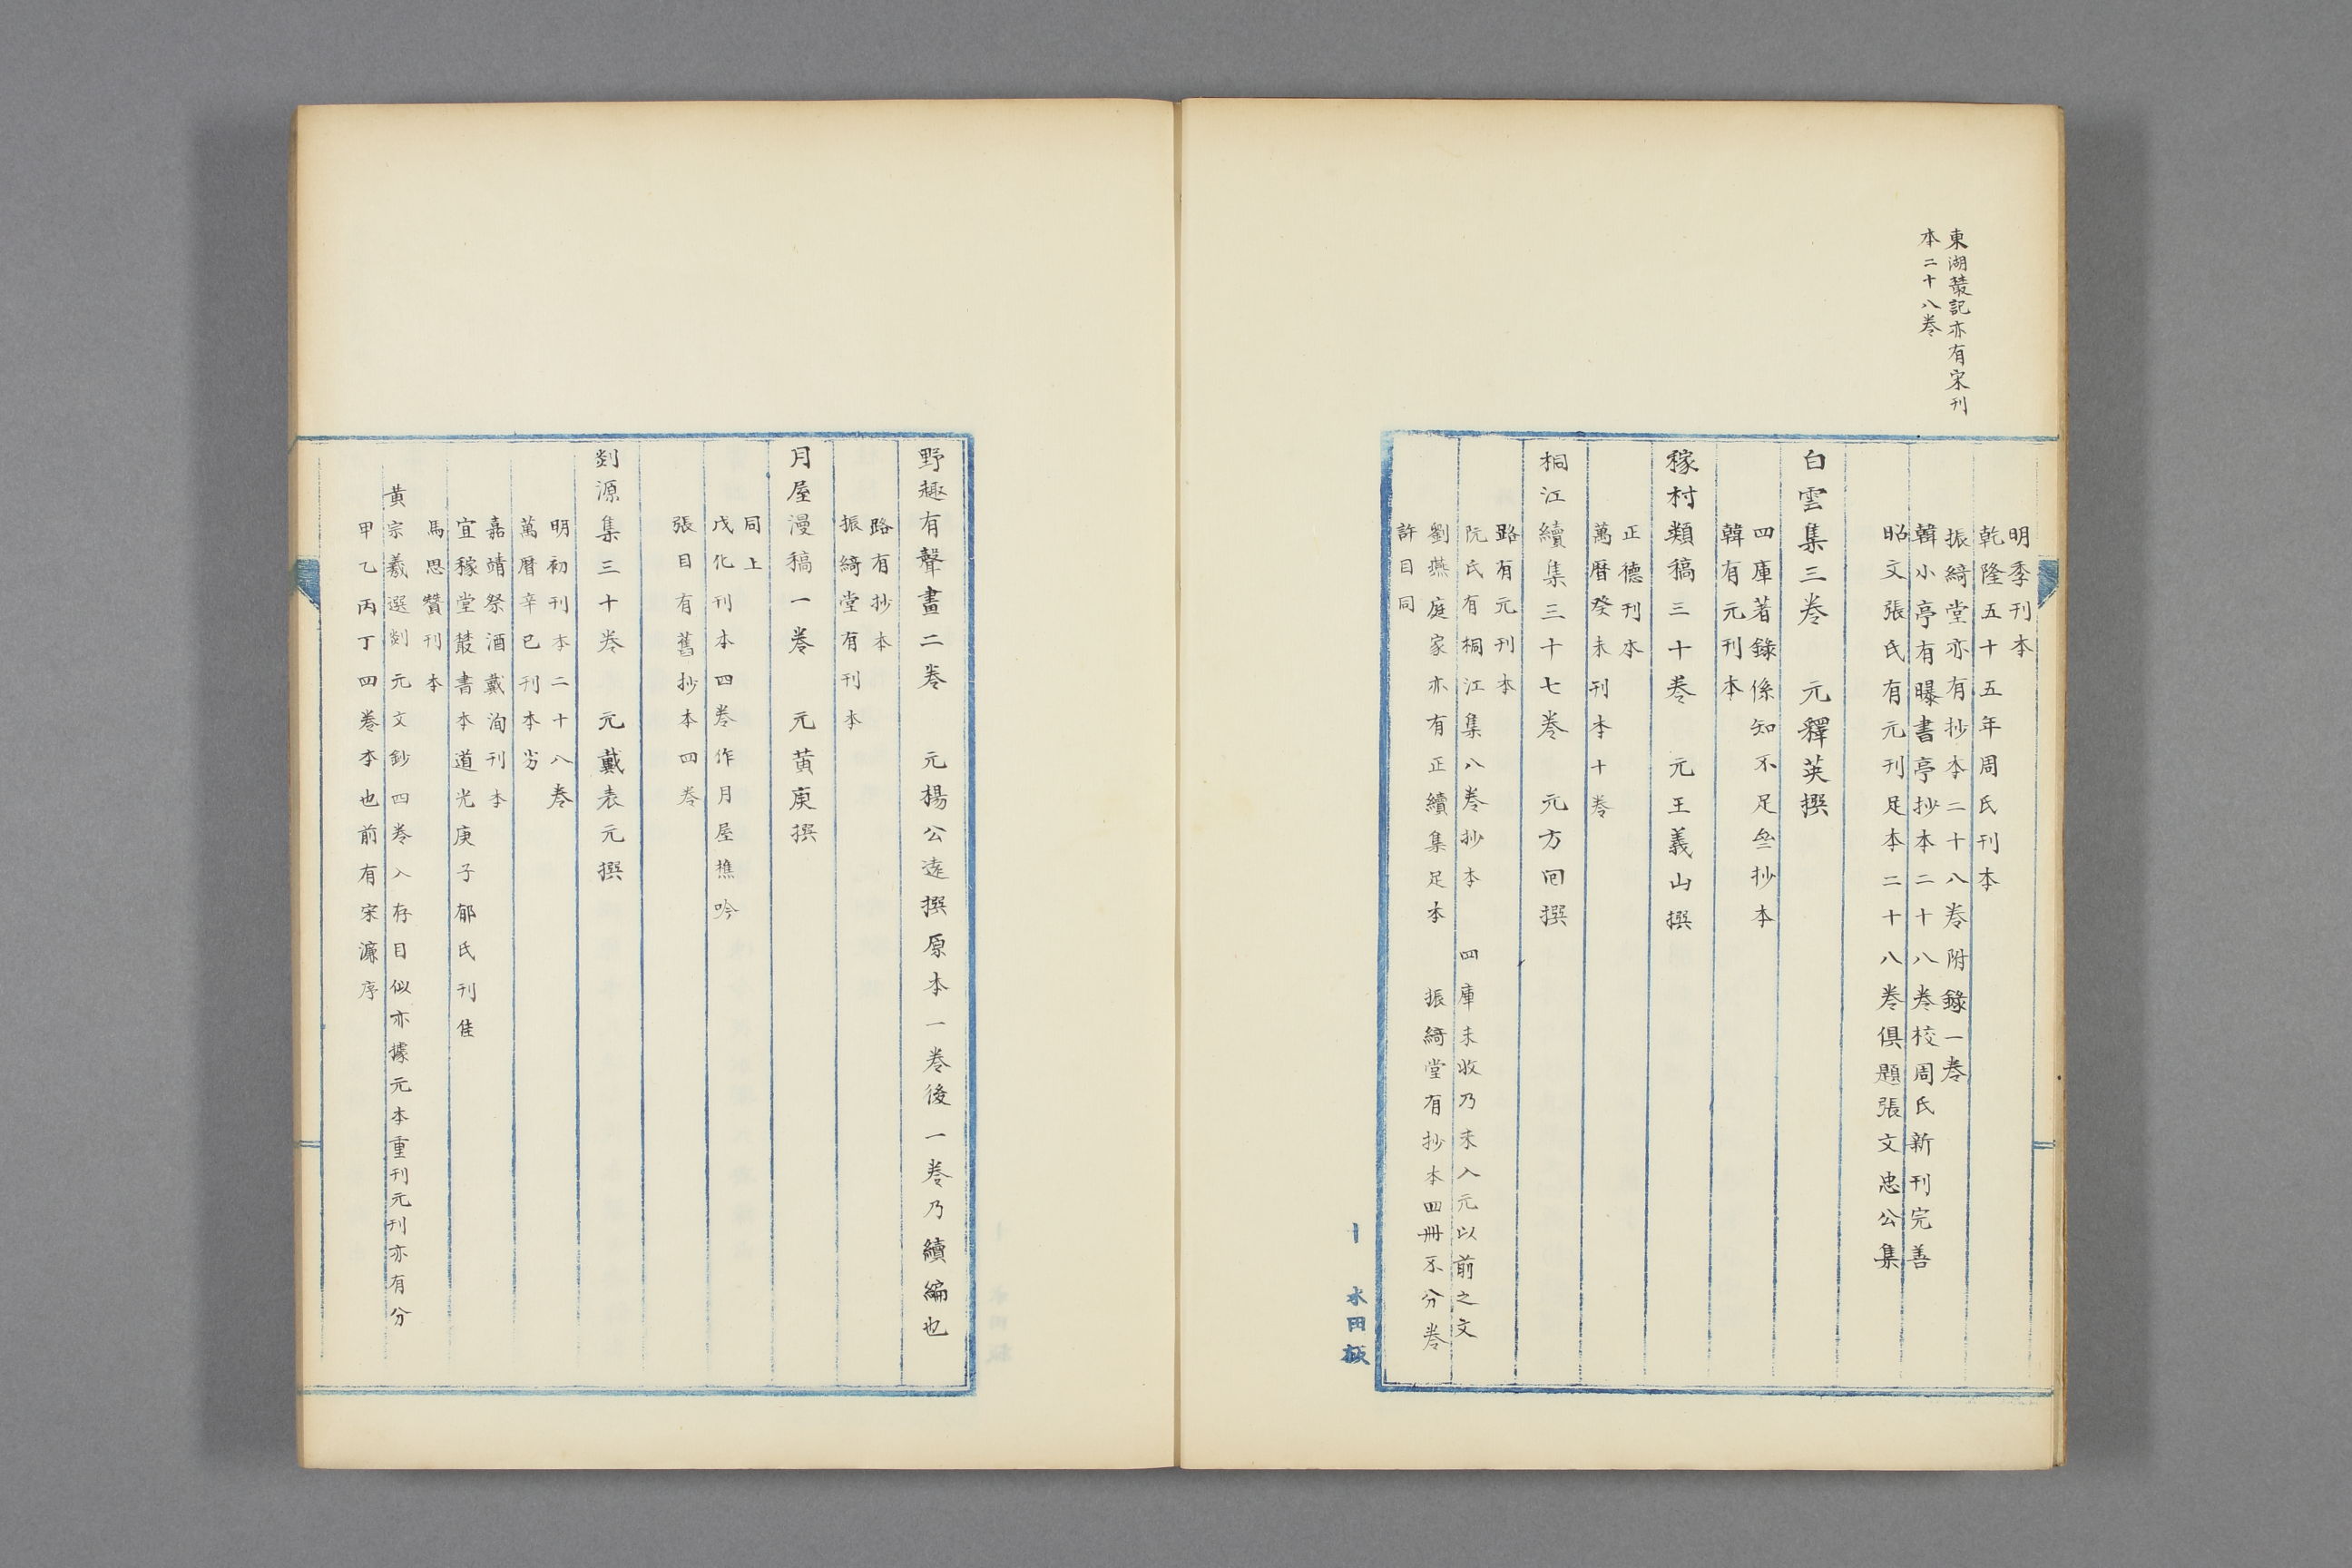 東湖叢記亦有宋刊
本二十八卷
明季刊本
乾隆五十五年周氏刊本
振綺堂亦有抄本二十八卷附錄一卷
韓小亭有曝書亭抄本二十八卷校周氏新刊完善
昭文張氏有元刊足本二十八卷俱題張文忠公集
白雲集三卷 元釋英撰
四庫著錄係知不足叁抄本
韓有元刊本
稼村類稿三十卷 元王義山撰
正德刊本
萬曆癸未刊本十卷
桐江續集三十七卷 元方囘撰
路有元刊本
阮氏有桐江集八卷抄本 四庫未收乃未入元以前之文
劉燕庭家亦有正續集足本 振綺堂有抄本四冊不分卷
許目同
水田
野趣有聲畫二卷 元楊公遠撰原本一卷後一卷乃續編也
路有抄本
振綺堂有刊本
月屋漫稿一卷 元黃庚撰
同上
戊化刊本四卷作月屋樵吟
張目有舊抄本四卷
剡源集三十卷 元戴表元撰
明初刊本二十八卷
萬曆辛巳刊本劣
嘉靖祭酒戴洵刊本
宜稼堂叢書本道光庚子郁氏刊佳
馬思贊刊本
黃宗羲選剡元文鈔四卷入存目似亦據元本重刊元刊亦有分
甲乙丙丁四卷本也前有宋濂序